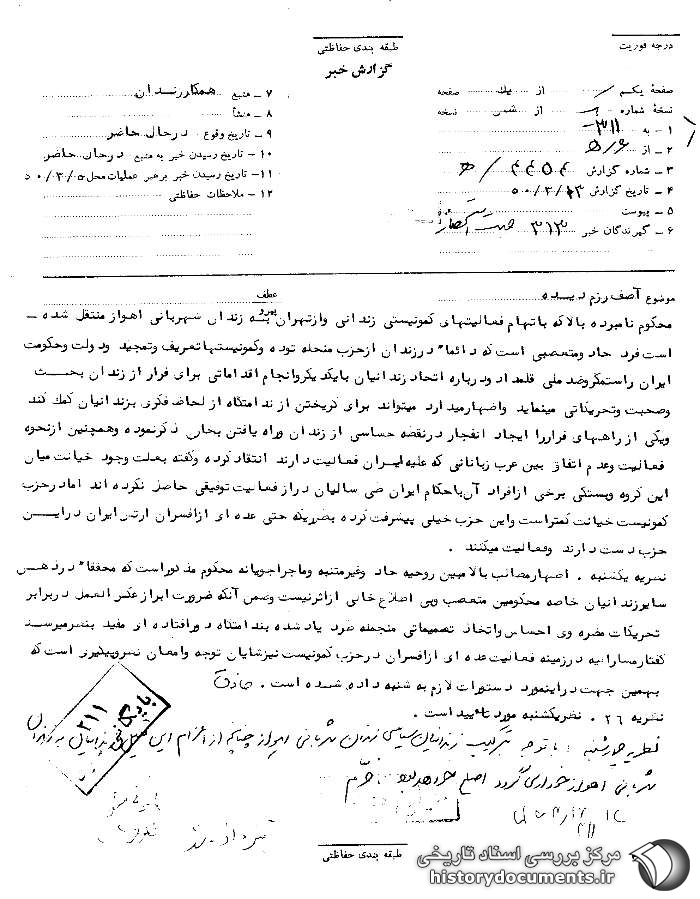 درجه فوریت
طبقه بندی حفاظتی
گزارش خبر
صفحهٔ یکم از یک صفحه
نسخهٔ شماره از شش نسخه
۱ ـ به ۳۱۱
۲ ـ از ۶ ه‍
۳ ـ شماره گزارش
۴ ـ تاریخ گزارش ۵۰/۳/۱۳
۵ ـ پیوست
۶ ـ گیرندگان خبر ۳۱۳ جهت
۷ ـ منبع همکار زندان
۸ ـ منشأ
۹ ـ تاریخ وقوع درحال حاضر
۱۰ ـ تاریخ رسیدن خبر به منبع درحال حاضر
۱۱ ـ تاریخ رسیدن خبر برهبر عملیات محل ۵۰/۳/۵
۱۲ ـ ملاحظات حفاظتی
موضوع آصف رزم دیده
عطف
محکوم نامبرده بالا که باتهام فعالیتهای کمونیستی زندانی وازتهران به زندان شهربانی اهواز منتقل شده ـ
است فرد حاد ومتعصبی است که دائما" درزندان ازحزب منحله توده وکمونیستها تعریف وتمجید ودولت وحکومت
ایران راستمگروضد ملی قلمداد ودرباره اتحاد زندانیان بایکدیگروانجام اقداماتی برای فرار از زندان بحث
وصحبت وتحریکاتی مینماید واظهارمیدارد میتواند برای گریختن از ندامتگاه از لحاظ فکری بزندانیان کمک کند
ویکی ازراههای فراررا ایجاد انفجار درنقطه حساسی از زندان وراه یافتن بخارج ذکرنموده وهمچنین ازنحوه
فعالیت وعدم اتفاق بین عرب زبانانی که علیه ایران فعالیت دارند انتقاد کرده وگفته بعلت وجود خیانت میان
این گروه وبستگی برخی ازافراد آن باحکام ایران طی سالیان دراز فعالیت توفیقی حاصل نکرده اند امادرحزب
کمونیست خیانت کمتراست واین حزب خیلی پیشرفت کرده بطوریکه حتی عده ای ازافسران ارتش ایران دراین
حزب دست دارند وفعالیت میکنند .
نظریه یکشنبه . اظهارمطالب بالا مبین روحیه حاد وغیرمتنبه وماجراجویانه محکوم مذکوراست که محققا" درذهن
سایرزندانیان خاصه محکومین متعصب وبی اطلاع خالی ازاثرنیست وضمن آنکه ضرورت ابراز عکس العمل دربرابر
تحریکات مضره وی احساس واتخاذ تصمیماتی منجمله طرد یاد شده بندامتگاه دورافتاده ای مفید بنظرمیرسد
گفتارمشارالیه درزمینه فعالیت عده ای ازافسران درحزب کمونیست نیزشایان توجه وامعان نظروپیگیری است که
بهمین جهت دراینمورد دستورات لازم به شنبه داده شده است . صادق
نظریه ۲۶ . نظریکشنبه مورد تایید است .
نظریه چهارشنبه : با توجه بترکیب زندانیان سیاسی زندان شهربانی اهواز چنانچه از اعزام این قبیل زندانیان به زندان
شهربانی اهواز خودداری گردد اصلح خواهد بود .
بایگانی
۳۱۱
طبقه بندی حفاظتی
مرکز بررسی اسناد تاریخی
historydocuments.ir